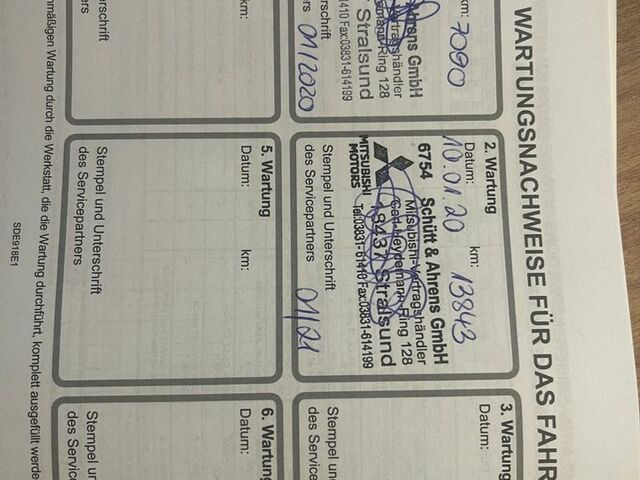 WARTUNGSNACHWEISE FÜR DAS FAHR
km: 7090
Ahrens GmbH
Ring 128
Stralsund
Fax:03831-614199
01/2020
2. Wartung
Datum: km:
10.01.20 13843
6754 Schütt & Ahrens GmbH
Mitsubishi-Vertragshändler
Carl-Heydemann-Ring 128
18437 Stralsund
MITSUBISHI
MOTORS Tel:03831-61410 Fax:03831-614199
Stempel und Unterschrift
des Servicepartners 01/21
3. Wartung
Datum:
Stempel un
des Service
5. Wartung
Datum: km:
Stempel und Unterschrift
des Servicepartners
6. Wartung
Datum:
Stempel un
des Service
nmäßigen Wartung durch die Werkstatt, die die Wartung durchführt, komplett ausgefüllt werde
SDE918E1